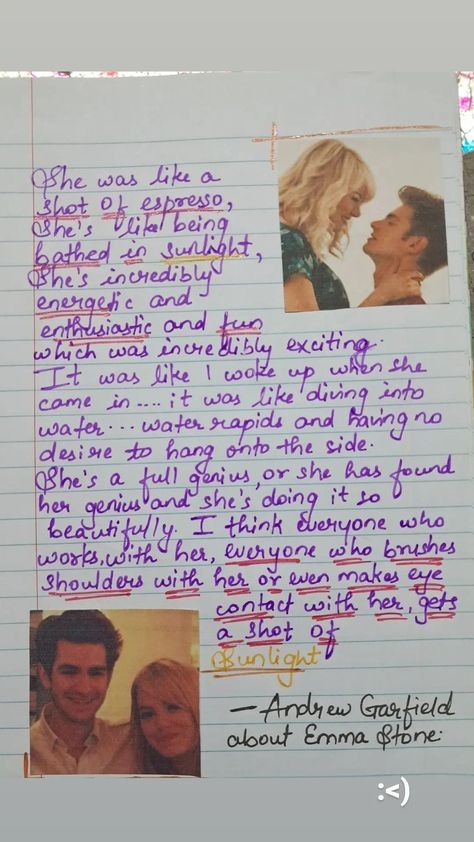 She was like a
shot of espresso,
She's like being
bathed in sunlight,
She's incredibly
energetic and
enthusiastic and fun
which was incredibly exciting.
It was like I woke up when she
came in.... it was like diving into
water... water rapids and having no
desire to hang onto the side.
She's a full genius, or she has found
her genius and she's doing it so
beautifully. I think everyone who
works, with her, everyone who brushes
shoulders with her or even makes eye
contact with her, gets
a shot of
Sunlight
— Andrew Garfield
about Emma Stone.
:<)